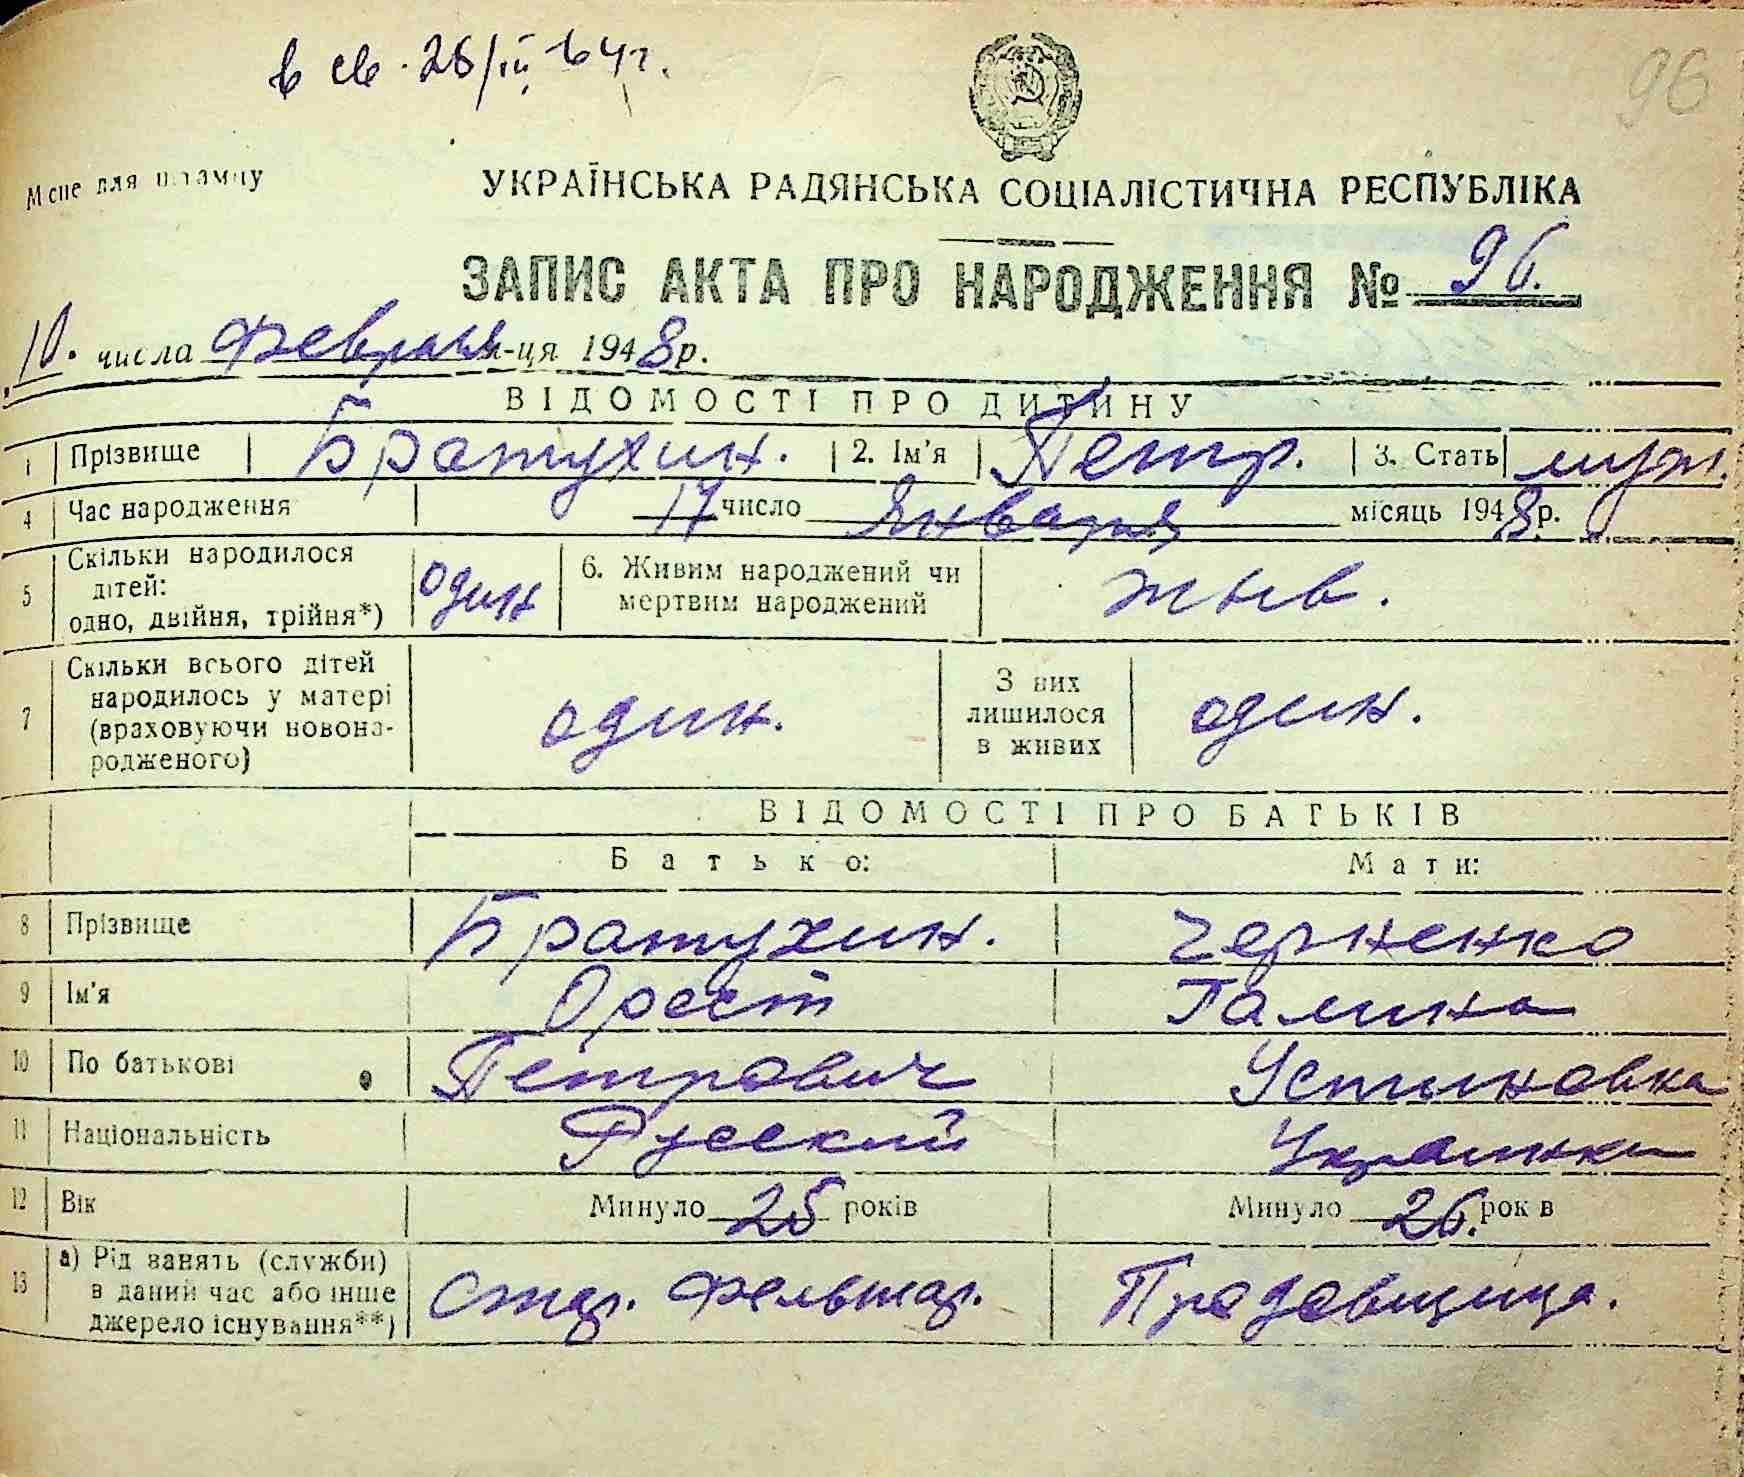 в св. 28/III 64 г.
96
Місце для штампу
УКРАЇНСЬКА РАДЯНСЬКА СОЦІАЛІСТИЧНА РЕСПУБЛІКА
ЗАПИС АКТА ПРО НАРОДЖЕННЯ № 96.
10. числа Февраля м-ця 1948 р.
ВІДОМОСТІ ПРО ДИТИНУ
1 Прізвище Братухин. 2. Ім'я Петр. 3. Стать муж.
4 Час народження 17 число Января місяць 1948 р.
5 Скільки народилося дітей: одно, двійня, трійня*) один 6. Живим народжений чи мертвим народжений жыв.
7 Скільки всього дітей народилось у матері (враховуючи новонародженого) один. З них лишилося в живих один.
ВІДОМОСТІ ПРО БАТЬКІВ
Батько: Мати:
8 Прізвище Братухин. Черненко
9 Ім'я Орест Галина
10 По батькові Петрович Устиновна
11 Національність Русский Украинка
12 Вік Минуло 25 років Минуло 26. років
13 а) Рід занять (служби) в даний час або інше джерело існування**) Стар. Фельшар. Продавщица.